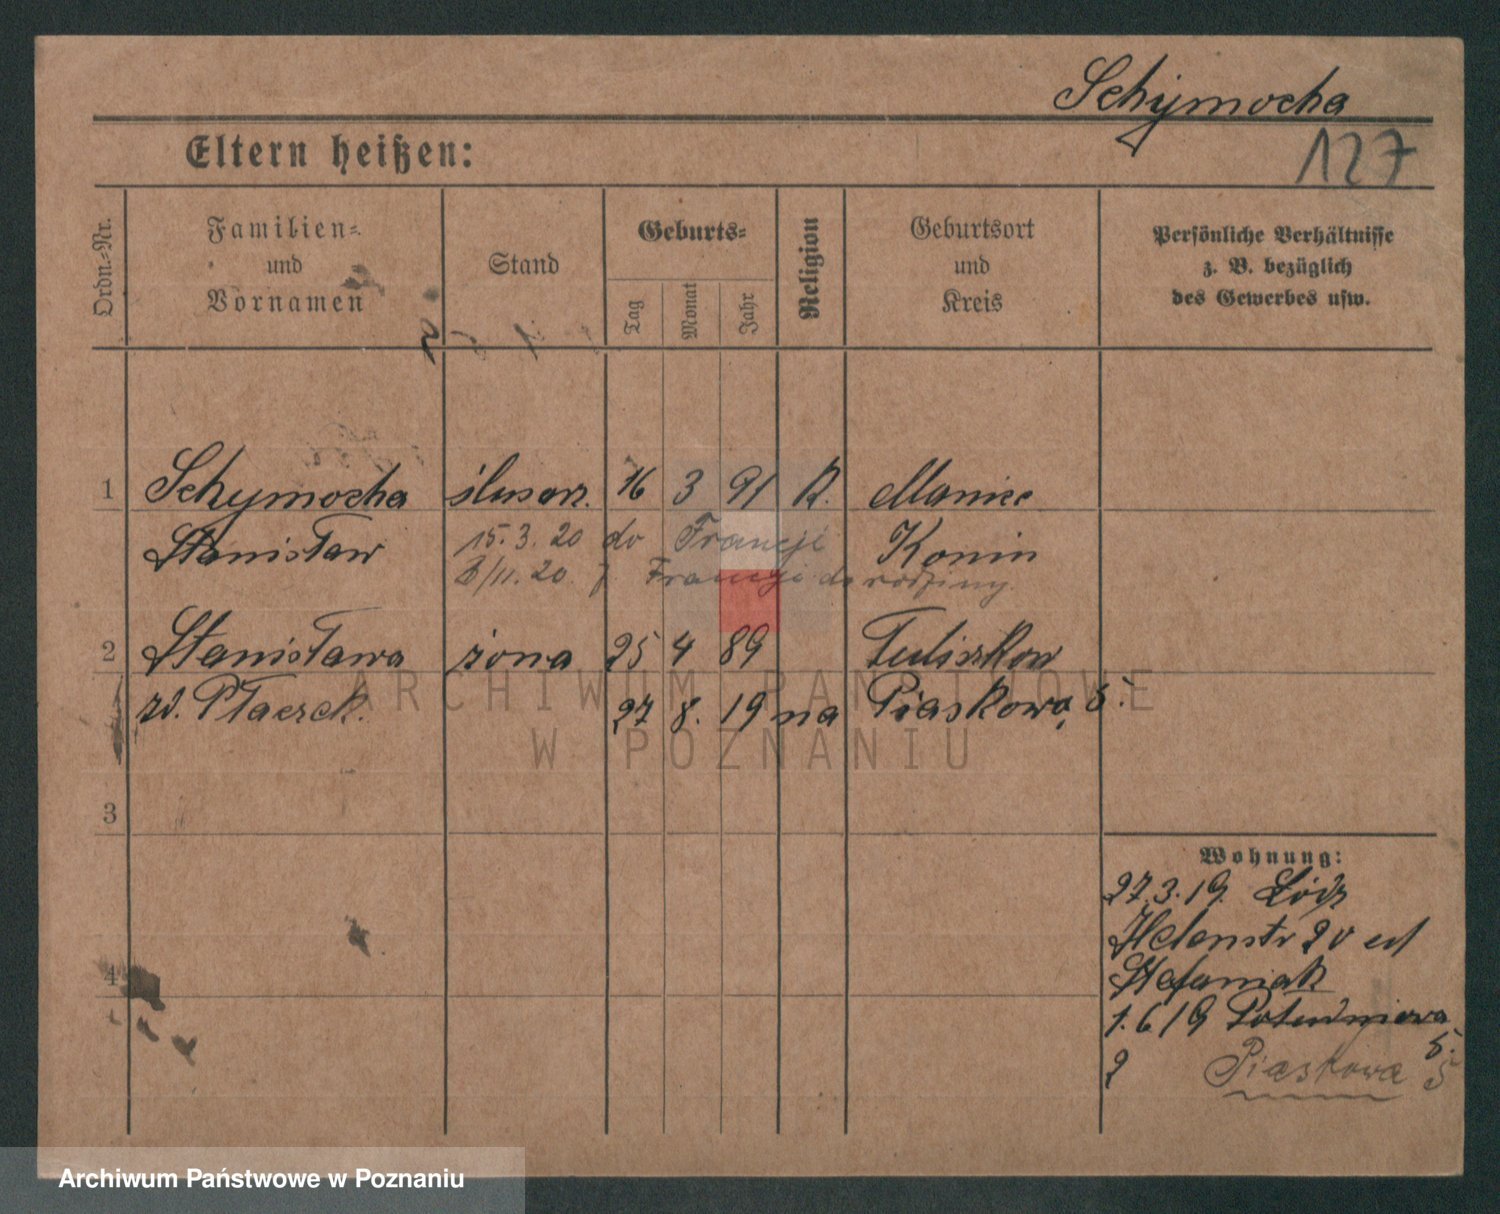 Schymocha
127
Eltern heißen:
Ordn.-Nr.
Familien-
und
Vornamen
Stand
Geburts-
Tag
Monat
Jahr
Religion
Geburtsort
und
Kreis
Persönliche Verhältnisse
z. B. bezüglich
des Gewerbes usw.
1 Schymocha ślusarz. 16 3 91 R.
Stanisław Konin
15. 3. 20 do Francji
8/11. 20 z Francji do rodziny.
2 Stanisława żona 25 4 89 Tuliszkow
zd. Ptaczek. 27 8. 19 na Piaskowa, 5.
3
4
Wohnung:
27.3.19. Łódz
Helenstr 20 ed
Stefaniak
1.6 19 Południowa
5.
2 Piaskowa 5
ARCHIWUM PAŃSTWOWE
W POZNANIU
Archiwum Państwowe w Poznaniu